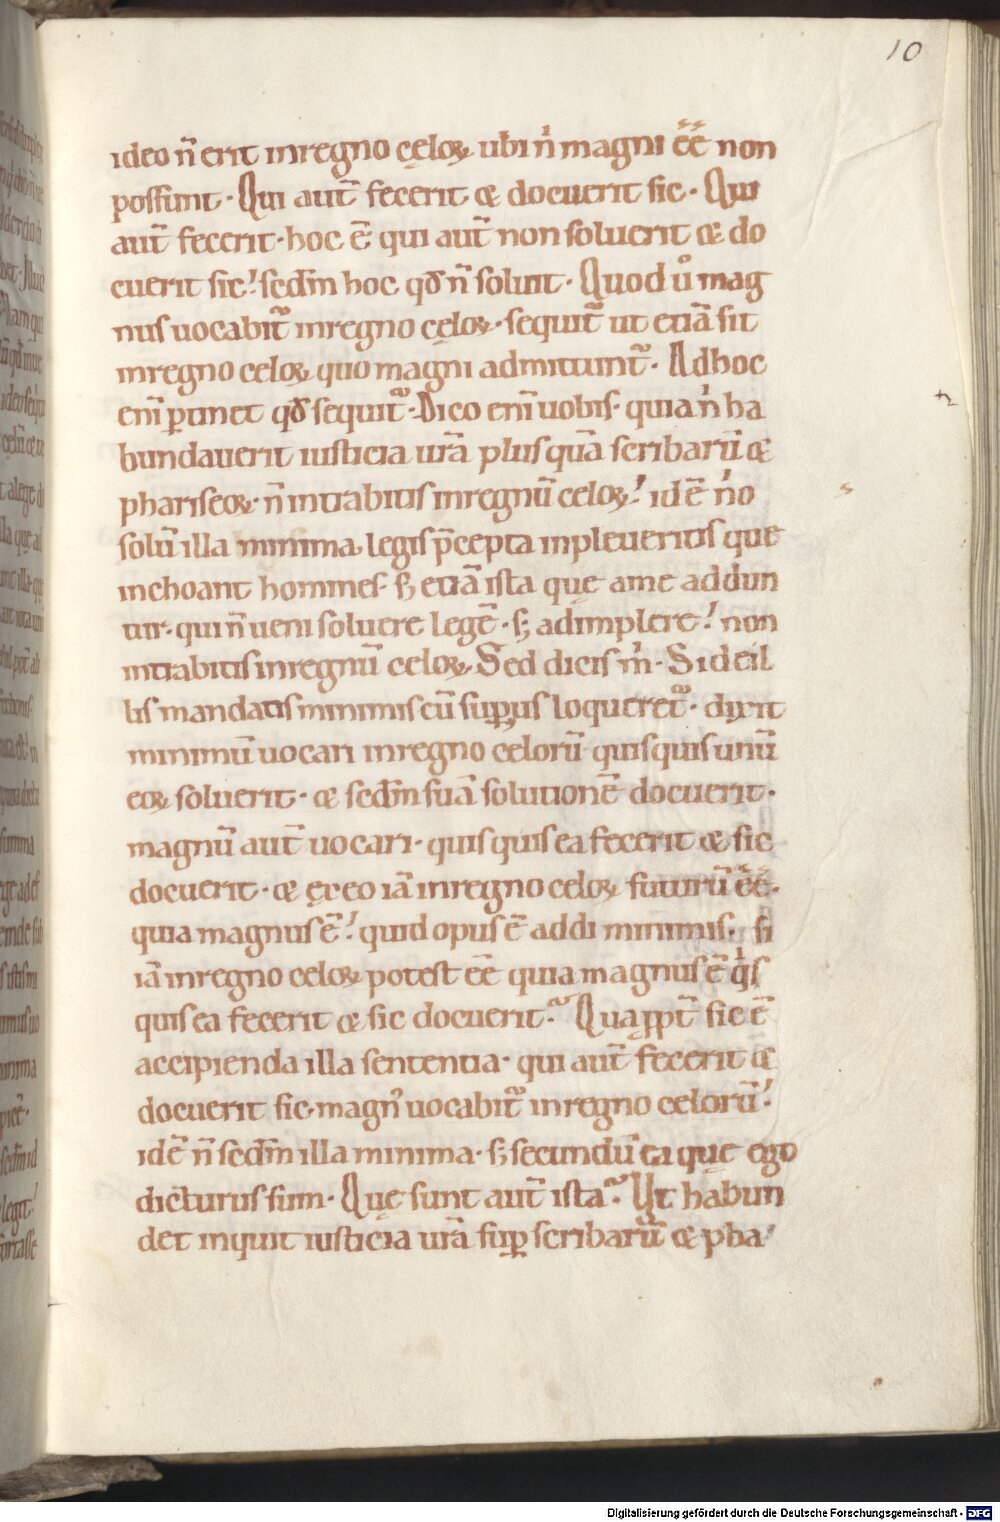 10
ideo n̄ erit inregno cęloꝝ ubi n̍ magni ēē non
possunt · Qui aut̄ fecerit & docuerit sic · Qui
aut̄ fecerit · hoc ē qui aut̄ non soluerit & do
cuerit sic! sedm̄ hoc qđ n̄ soluit · Quod ůmag
nus uocabit᷑ inregno cęloꝝ · sequit᷑ ut etiā sit
inregno celoꝝ quo magni admittunt᷑ · Ad hoc
eni ̄ ꝑtinet qđ sequit᷑ · Dico eni ̄ uobis · quia n̍ ha
bundauerit iusticia ur̄a plus quā scribarū &
phariseoꝝ · n̄ intrabitis inregnū celoꝝ! id ē n̍o
solū illa minima legis p̄cepta inpleueritis que
inchoant homines · sꝫ etiā ista quę ame addun
tur · qui n̄ ueni soluere legē · sꝫ adimplere! non
intrabitis inregnū celoꝝ Sed dicis m̍ · Si de il
lis mandatis minimis cū suꝑius loqueret᷑ · dixit
minimū uocari inregno celorū quisquis unū
eoꝝ soluerit · & sedm̄ suā solutionē docuerit ·
magnū aut̄ uocari · quisquis ea fecerit & sic
docuerit · & ęx eo iā inregno celoꝝ futurū ēē ·
quia magnus ē! quid opus ē addi minimis · si
iā inregno celoꝝ potest ēē quia magnus ē q̍s
quis ea fecerit & sic docuerit? Quaꝓpt̄ sic ē
accipienda illa sententia · qui aut̄ fecerit &
docuerit sic · magn᾽ uocabit᷑ inregno celorū!
id ē n̄ sedm̄ illa minima · sꝫ secundū ea quę ego
dicturus sum · Quę sunt aut̄ ista? Ut habun
det inquit iusticia ur̄a suꝑ scribarū & pha
Digitalisierung gefördert durch die Deutsche Forschungsgemeinschaft - DFG